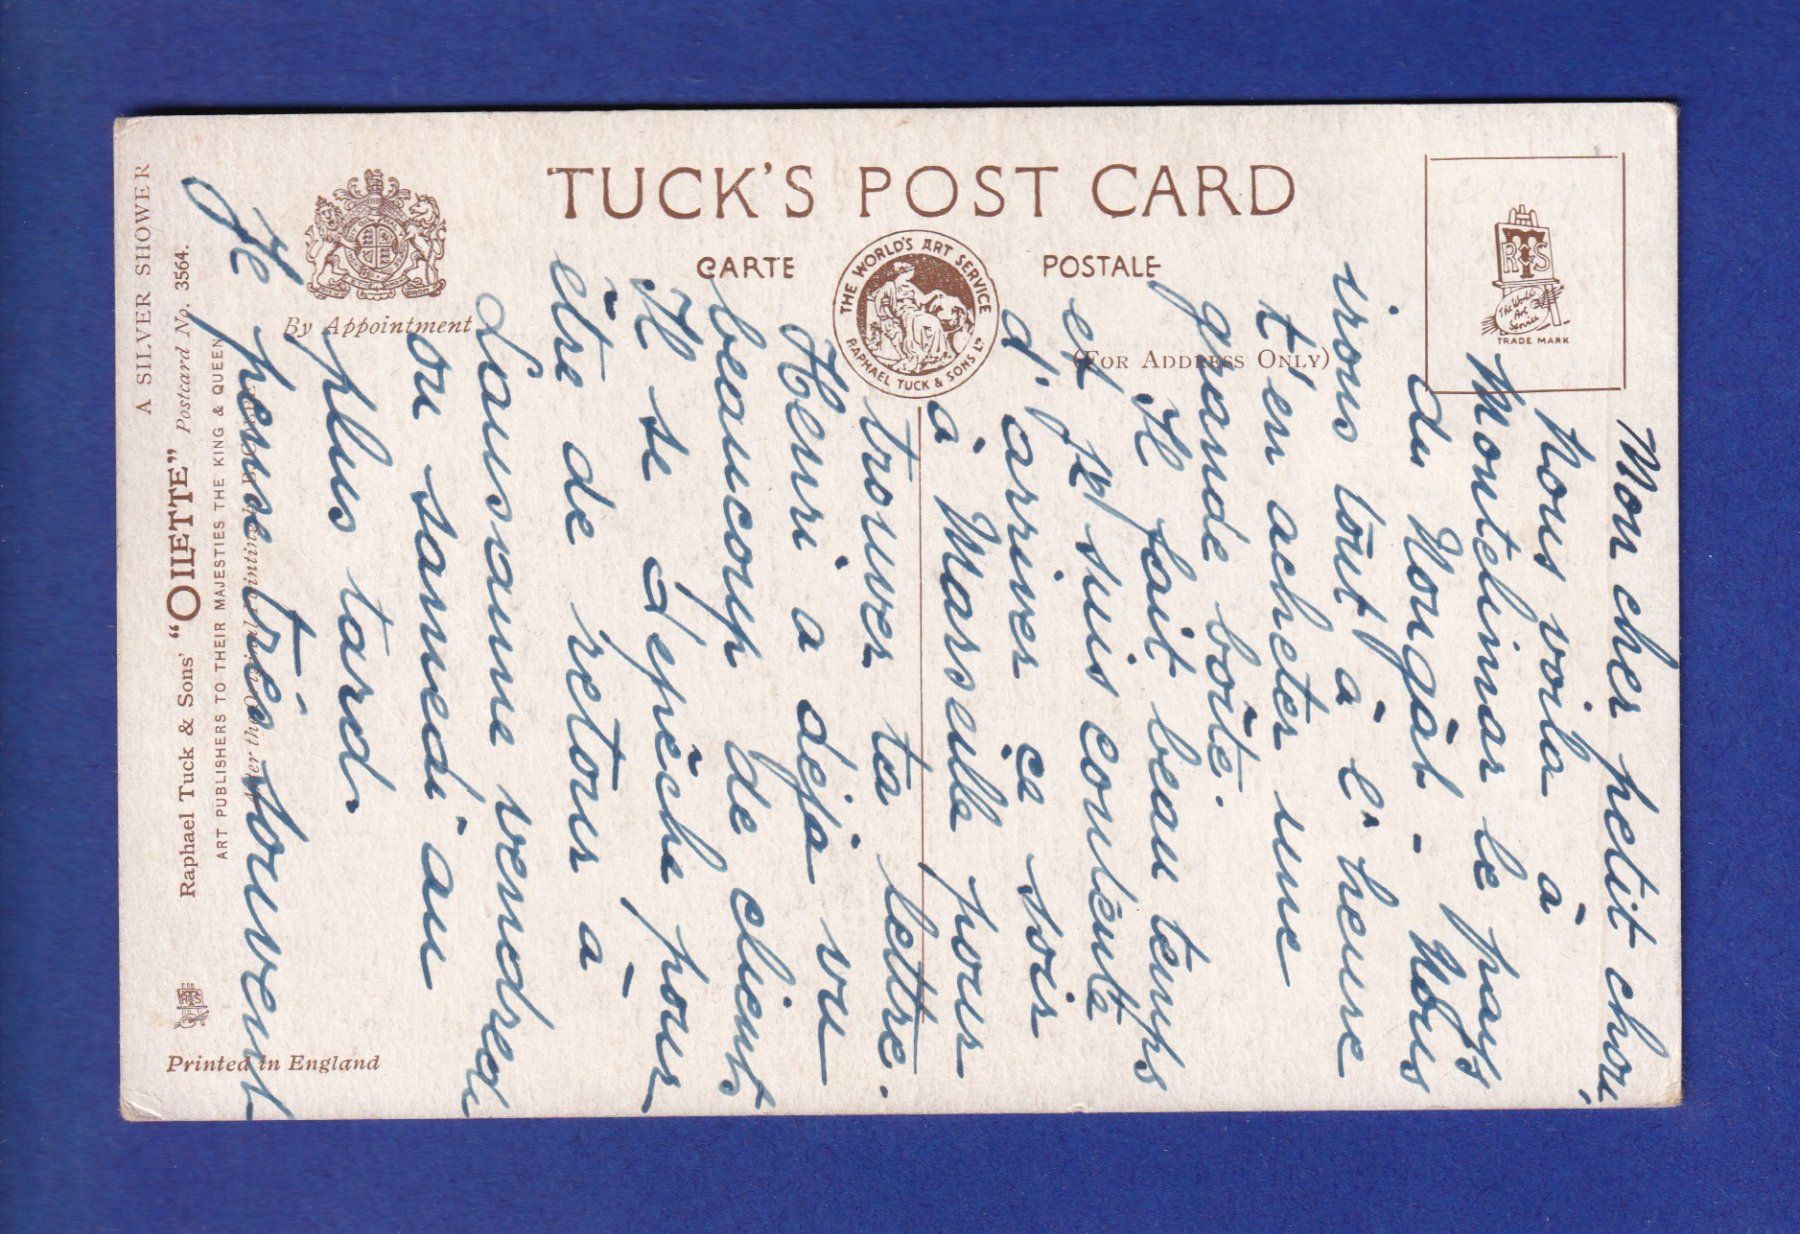 A SILVER SHOWER
Raphael Tuck & Sons' "OILETTE" Postcard No. 3564.
ART PUBLISHERS TO THEIR MAJESTIES THE KING & QUEEN
After the Original Painting by
Printed in England
By Appointment
TUCK'S POST CARD
CARTE POSTALE
THE WORLD'S ART SERVICE
RAPHAEL TUCK & SONS LD
(FOR ADDRESS ONLY)
RTS
The World's
Art
Service
TRADE MARK
Mon cher petit chou,
Nous voila à
Montelimar le pays
du Nougat - Nous
irons tout à l'heure
t'en acheter une
grande boîte.
Il fait beau temps
et je suis contente
d'arriver ce soir
à Marseille pour
trouver ta lettre.
Henri a déjà vu
beaucoup de clients
Il se dépêche pour
être de retour à
Lausanne vendredi
ou samedi au
plus tard.
Je pense très souvent